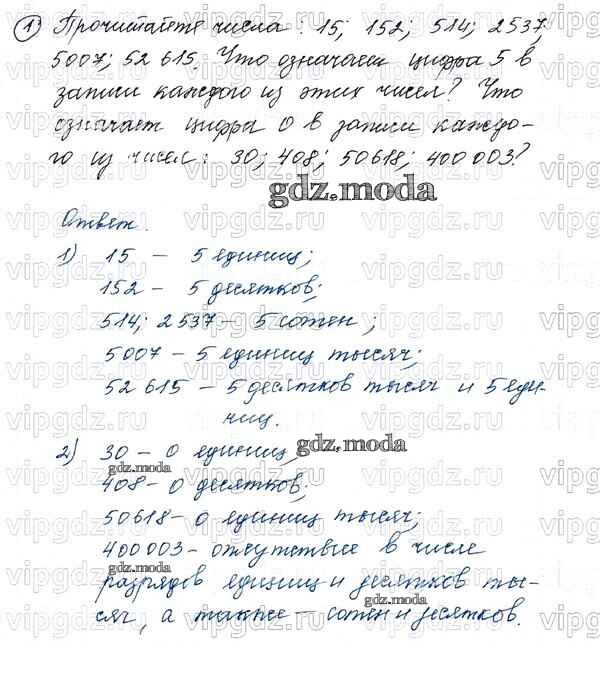 1) Прочитайте числа: 15; 152; 514; 2537;
5007; 52 615. Что означает цифра 5 в
записи каждого из этих чисел? Что
означает цифра 0 в записи каждо-
го из чисел: 30; 408; 50618; 400 003?
gdz.moda
Ответ.
1) 15 – 5 единиц;
152 – 5 десятков;
514; 2537 – 5 сотен;
5007 – 5 единиц тысяч;
52 615 – 5 десятков тысяч и 5 еди-
ниц.
2) 30 – 0 единиц;
gdz.moda
gdz.moda
408 – 0 десятков;
50618 – 0 единиц тысяч;
400 003 – отсутствие в числе
gdz.moda
разрядов единиц и десятков ты-
gdz.moda
сяч, а также – сотен и десятков.
vipgdz.ru